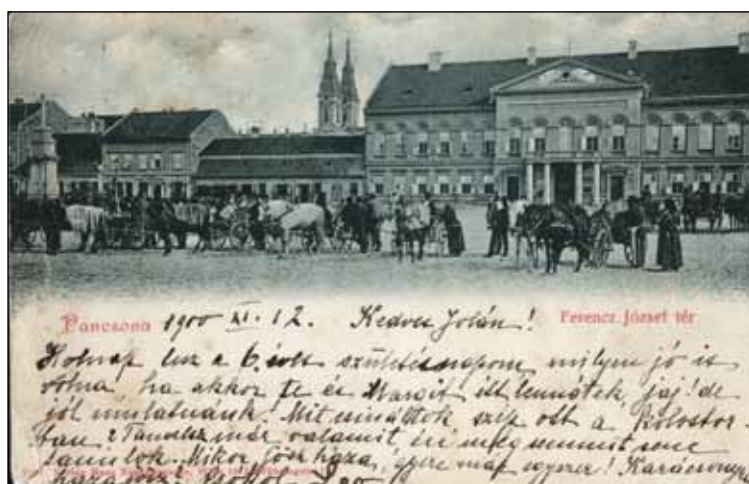 Pancsova 1900 XI. 12. Kedves Jolán! Ferencz József tér
Holnap lesz a 6. születésnapom, milyen jó is
volna, ha akkor te és Margit itt lennétek, jaj! de
jól mulatnánk! Mit csináltok szép ott a kolostor-
ban? Tanulsz már valamit, én még semmit sem
tanulok. Mikor jösz haza, gyere már egyszer! Karácsony